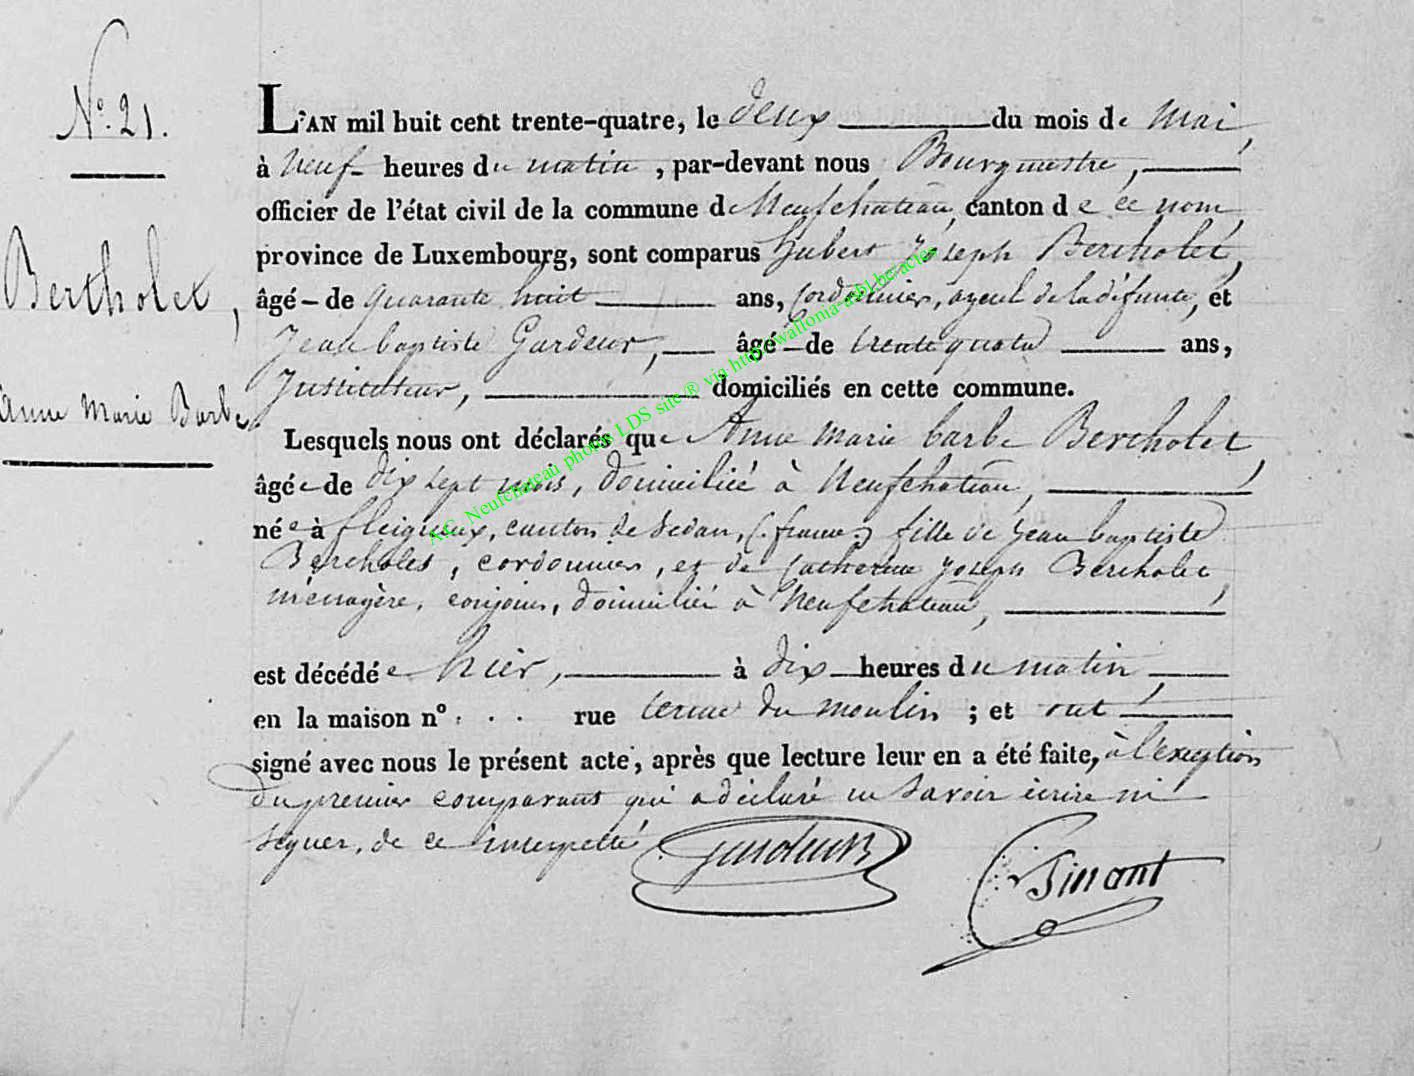 N.° 21.
Bertholet,
Anne Marie Barbe
L'AN mil huit cent trente-quatre, le deux du mois de Mai,
à neuf heures du matin, par-devant nous Bourgmestre,
officier de l'état civil de la commune de Neufchateau, canton de ce nom,
province de Luxembourg, sont comparus Hubert Joseph Bertholet,
âgé - de quarante huit ans, cordonnier, ayeul de la défunte, et
Jean baptiste Gardeur, âgé - de trente quatre ans,
Instituteur, domiciliés en cette commune.
Lesquels nous ont déclarés que Anne Marie barbe Bertholet,
âgée de dix sept mois, domiciliée à Neufchateau,
née à fleigneux, canton de Sedan, (france) fille de Jean baptiste
Bertholet, cordonnier, et de Catherine Joseph Bertholet,
ménagère, conjoins, domicilié à Neufchateau,
est décédée hier, à dix heures du matin,
en la maison n° . . . rue du moulin ; et ont
signé avec nous le présent acte, après que lecture leur en a été faite, à l'exception
du premier comparant qui a déclaré ne savoir écrire ni
signer, de ce interpellé
Gardeur
A.C. Neufchateau photos LDS site ® via http://wallonia-asbl.be-actes